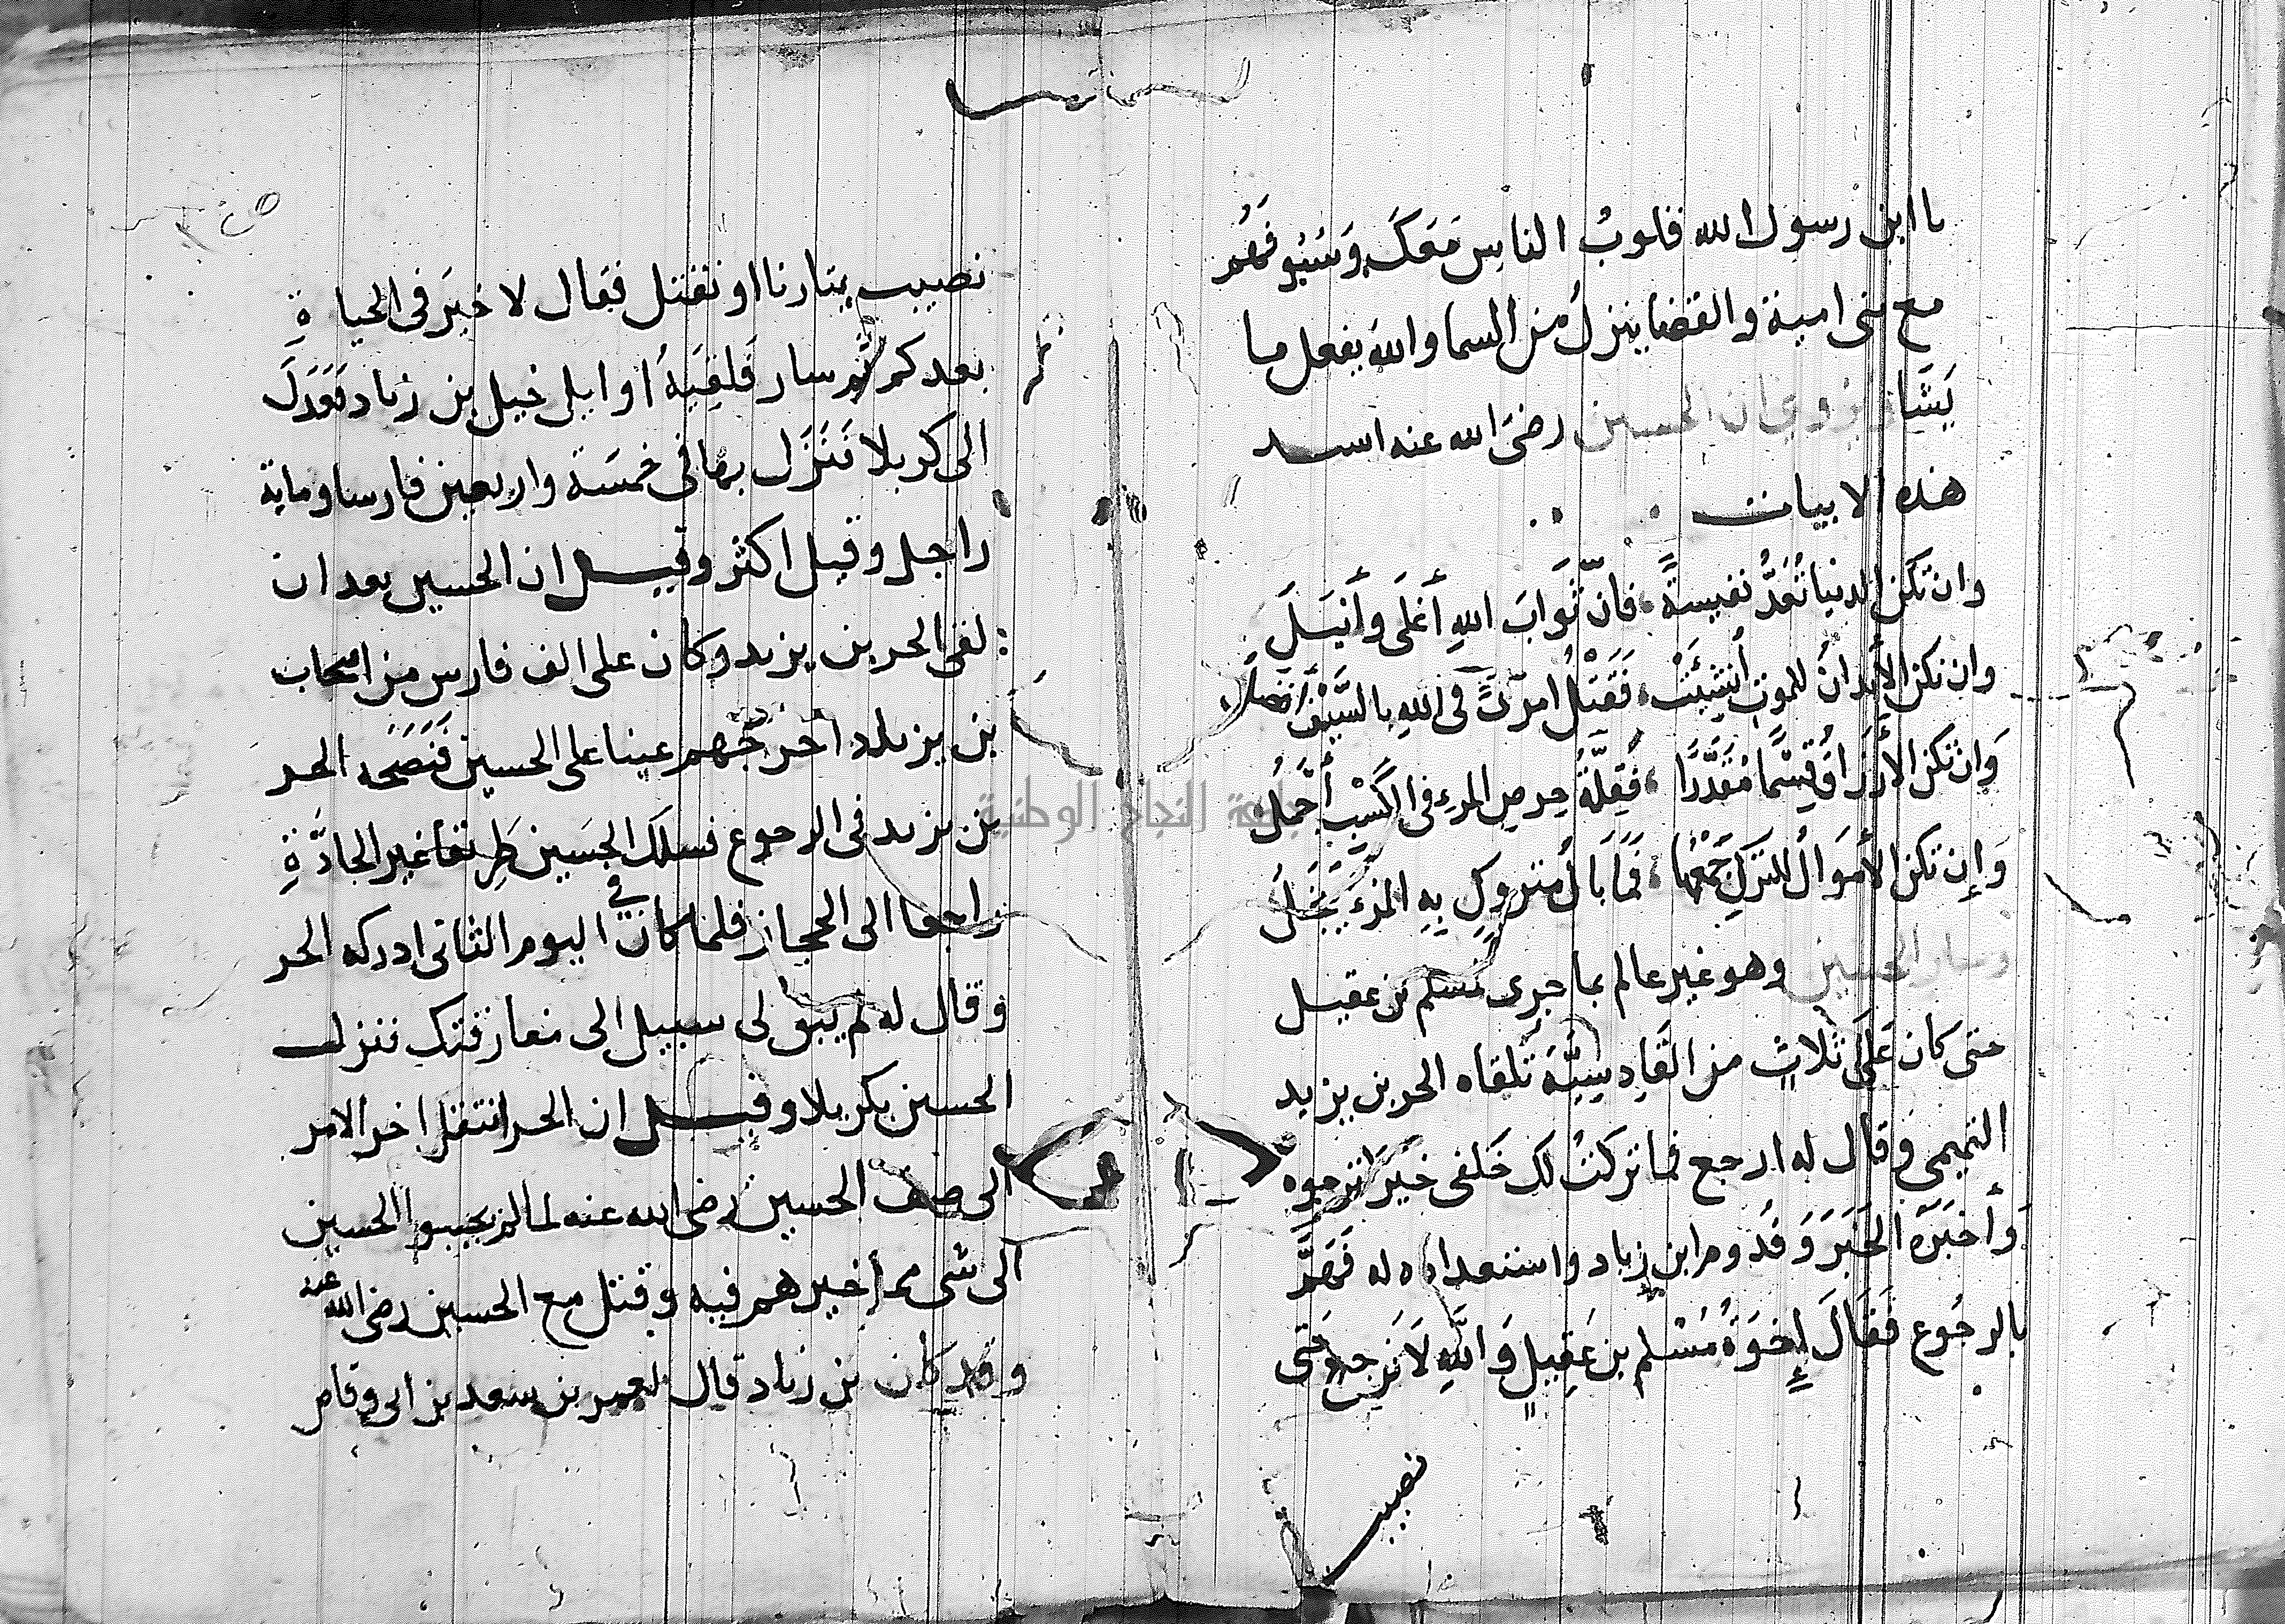 يا ابن رسول الله قلوبُ الناسِ مَعَكَ وَسَيُوفَهُم
مع بنى امية والقضا ينزلُ من السما والله يفعل ما
يَشَا ويُروي ان الحسين رضىَ الله عنه انشد
هذه الابيات
وان تكن الدنيا تُعَدُّ نفيسةً فانّ ثَوابَ اللهِ أَغلَى وأَنبَلَ
وان تكن الأَبدانُ للموتِ أُنشِئَتْ فَقَتْلُ امرئً فى اللهِ بالسَّيْفِ أفضلُ
وَان تكن الأَرزَاقُ قِسْمًا مُقَدَّرًا فَقِلَّةُ حِرصِ المرءِ فى الكَسْبِ أَجمَلُ
وَإِن تكن الأَموَالُ للتركِ جَمْعُها فَمَا بَالُ متروكٍ بِهِ المَرْءُ يَبْخَلُ
وسار الحسين وهو غير عالم بما جرى لمسلم بن عقيل
حتى كان عَلَى ثلاثٍ من القَادِسِيَّةَ تلقاه الحر بن يزيد
التميمى وقال له ارجع فما تركتُ لك خَلفى خَيرًا ترجوه
وَأَخبَرَهُ الخَبَرَ وَقُدُومَ ابن زياد واستعداده له فَهَمَّ
بالرجُوع فَقَالَ إِخوَةُ مُسْلِم بن عَقِيلٍ وَاللَّهِ لَا نَرجِعُ حَتى
نصيب
نصيب بثارنا او نقتل فقال لا خيَر فى الحياةِ
بعدكم ثم سار فَلَقِيَهُ اوايلى خيل بن زياد فَعَدَلَ
الى كربلا فَنَزَل بها فى خمسَة واربعين فارسا وماية
راجل وقيل اكثر وقيل ان الحسين بعد ان
لقى الحر بن يزيد وكان على الف فارس من اصحاب
بن يزيد اخرجهم عينا على الحسين فَنَصَحَه الحر
بن يزيد فى الرجوع فسلك الحسَين طَرِيقًا غير الجادَّةِ
راجعا الى الحجاز فلما كان في اليوم الثانى ادركه الحر
وقال له لم يبق لى سبيل الى مفارقتك فنزل
الحسين بكربلا وقيل ان الحر انتقل اخر الامر
الى صف الحسين رضى الله عنه لما لم يجيبوا الحسين
الى شى مما خيرهم فيه وقتل مع الحسين رضى الله عنه
وقد كان بن زياد قال لعمر بن سعد بن ابى وقاص
جامعة النجاح الوطنية